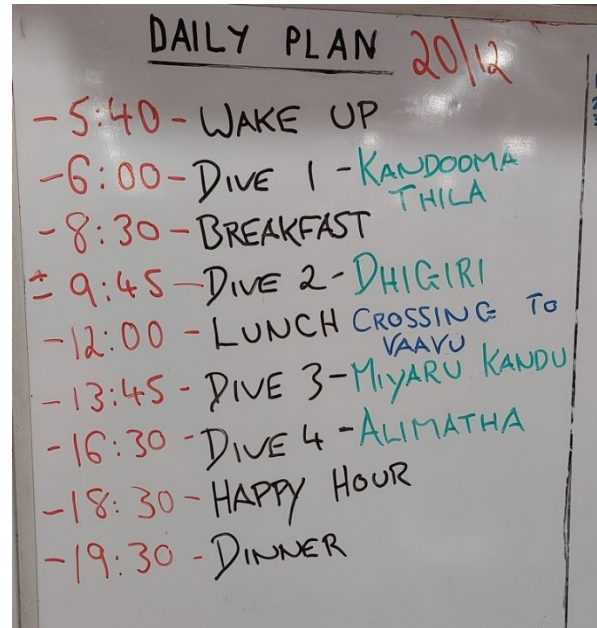 DAILY PLAN 20/12
- 5:40 - WAKE UP
- 6:00 - DIVE 1 - KANDOOMA
THILA
- 8:30 - BREAKFAST
± 9:45 - DIVE 2 - DHIGIRI
- 12:00 - LUNCH CROSSING TO
VAAVU
- 13:45 - DIVE 3 - MIYARU KANDU
- 16:30 - DIVE 4 - ALIMATHA
- 18:30 - HAPPY HOUR
- 19:30 - DINNER